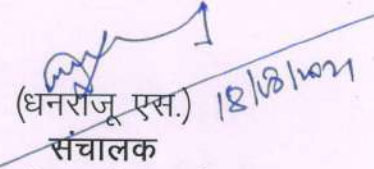 (धनराजू एस.) 18/08/2021
संचालक